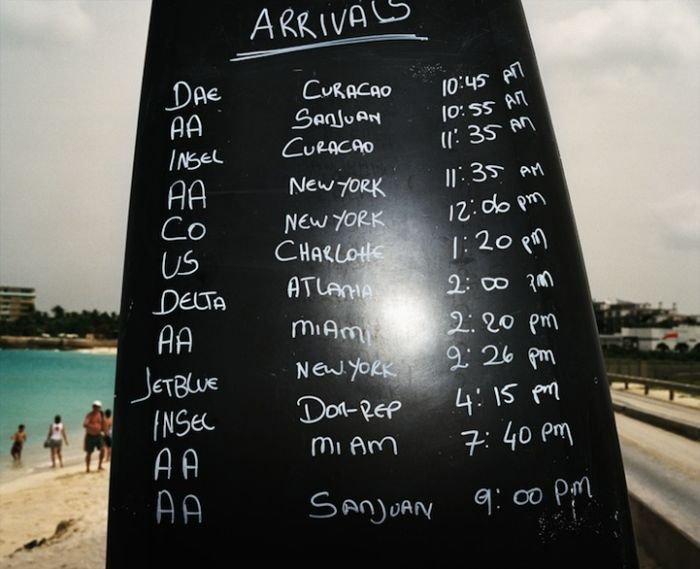 ARRIVALS
DAE CURACAO 10:45 AM
AA SANJUAN 10:55 AM
INSEL CURACAO 11:35 AM
AA NEW YORK 11:35 AM
CO NEW YORK 12:06 pm
US CHARLOTTE 1:20 pm
DELTA ATLANTA 2:00 pm
AA MIAMI 2:20 pm
JETBLUE NEW YORK 2:26 pm
INSEL DOM-REP 4:15 pm
AA MIAMI 7:40 pm
AA SANJUAN 9:00 pm